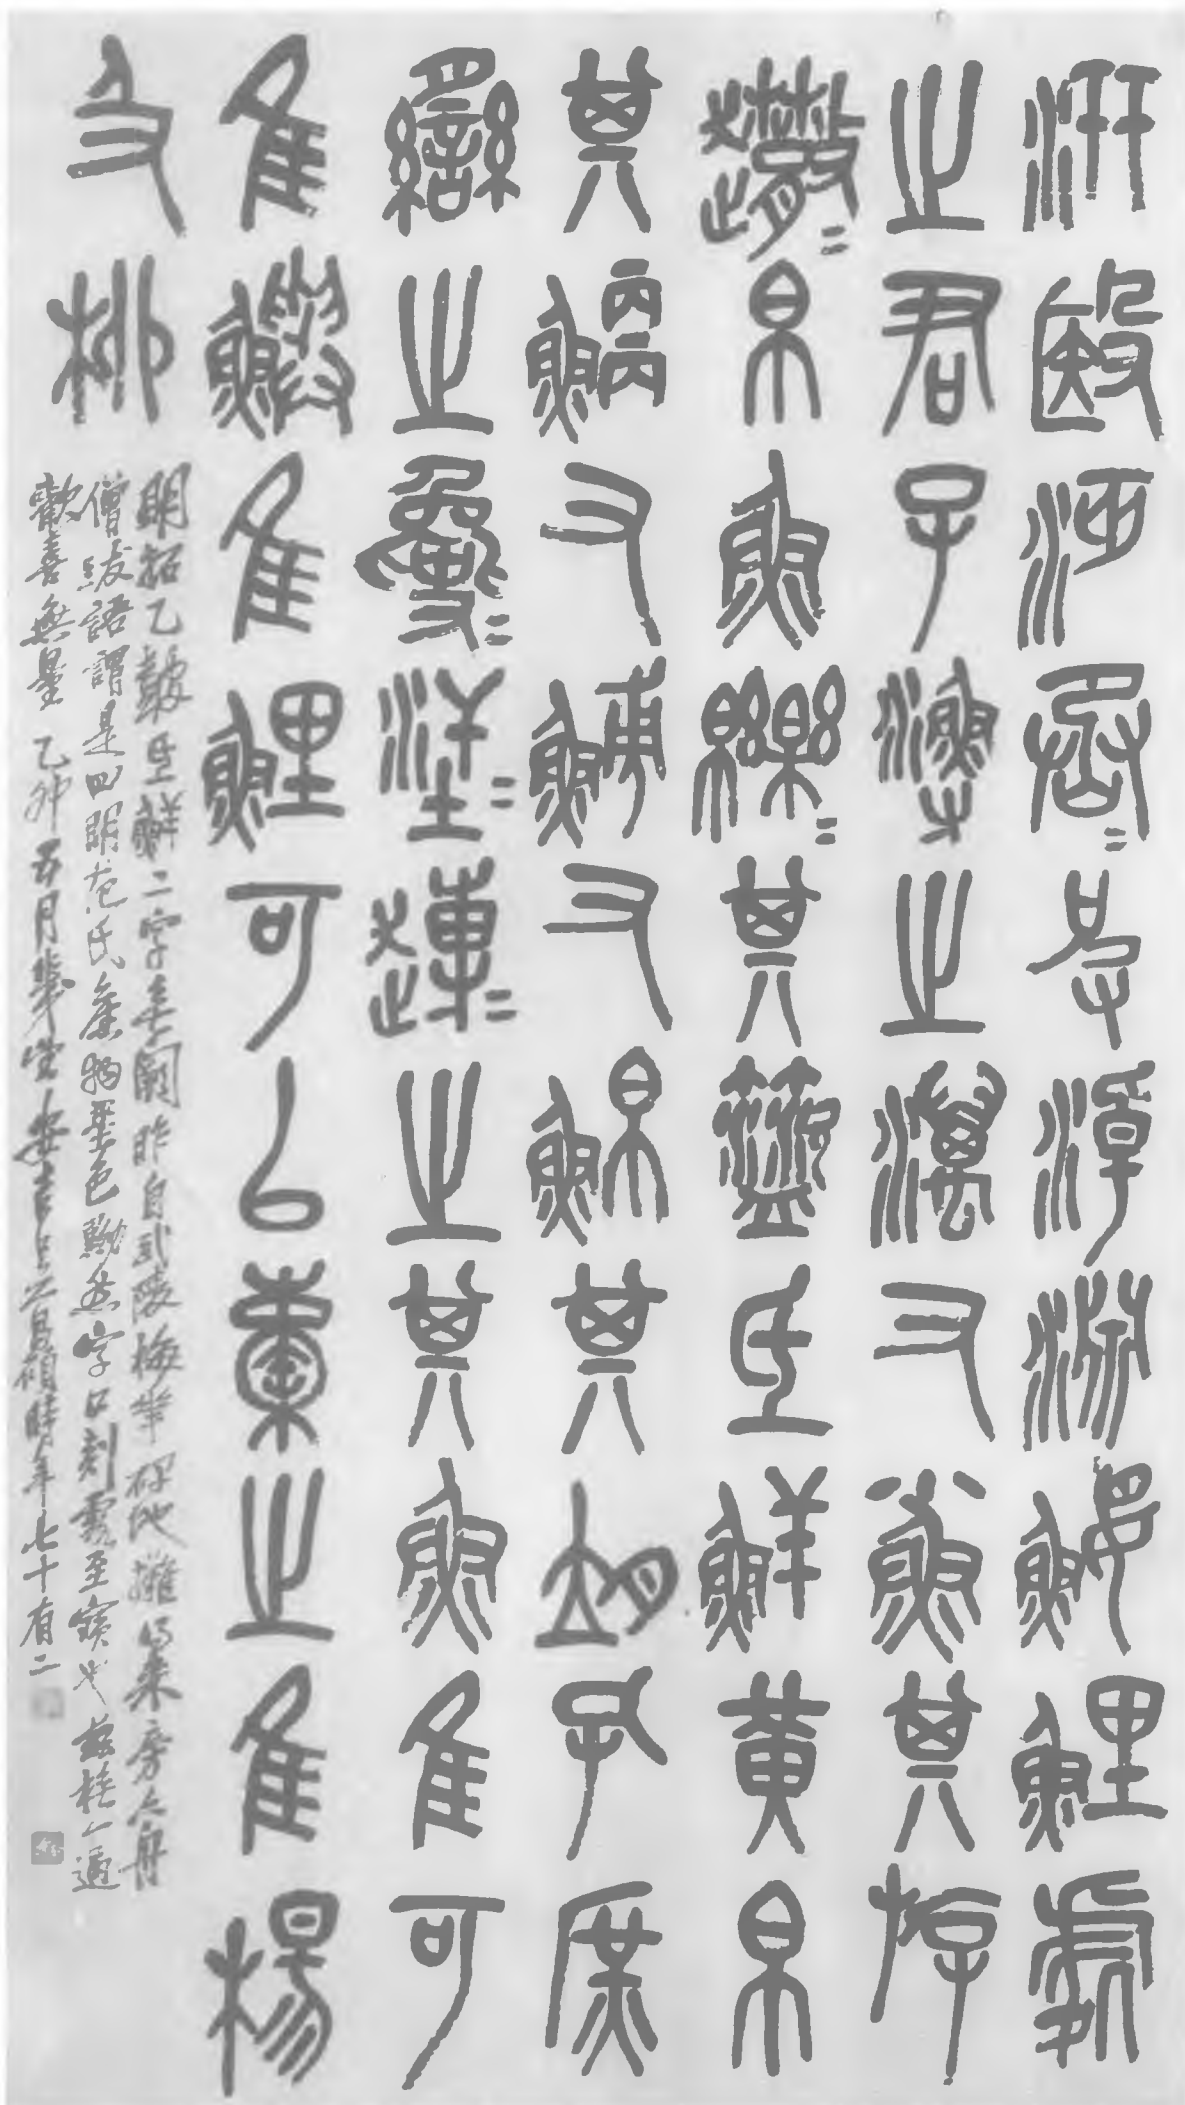 汧殹沔烝=皮淖淵鰋鯉處
之君子漁之澫又鯊其斿
𧽙=帛魚皪=其盜氐鮮黃帛
其鯾又鱄又鮊其孔庶
臠之毚=汗=趩=之其魚隹可
隹鱮隹鯉可以橐之隹楊
及柳
明拓乙鼓氐鮮二字未闕昨自武陵梅華
僧跋語謂是四明范氏舊物墨色黝然字口刻露至寶也茲橅一過
歡喜無量乙卯五月幾望安吉吳昌碩時年七十有二